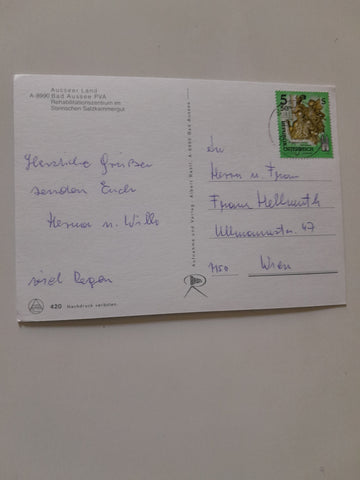 Ausseer Land
A-8990 Bad Aussee PVA
Rehabilitationszentrum im
Steirischen Salzkammergut
Herzliche Grüße
senden Euch
Herma u. Willi
viel Regen
420 Nachdruck verboten.
Aufnahme und Verlag: Albert Rastl, A-8990 Bad Aussee
5
S
An
Herrn u. Frau
Franz Hellmuth
Ullmannstr. 47
1150 Wien